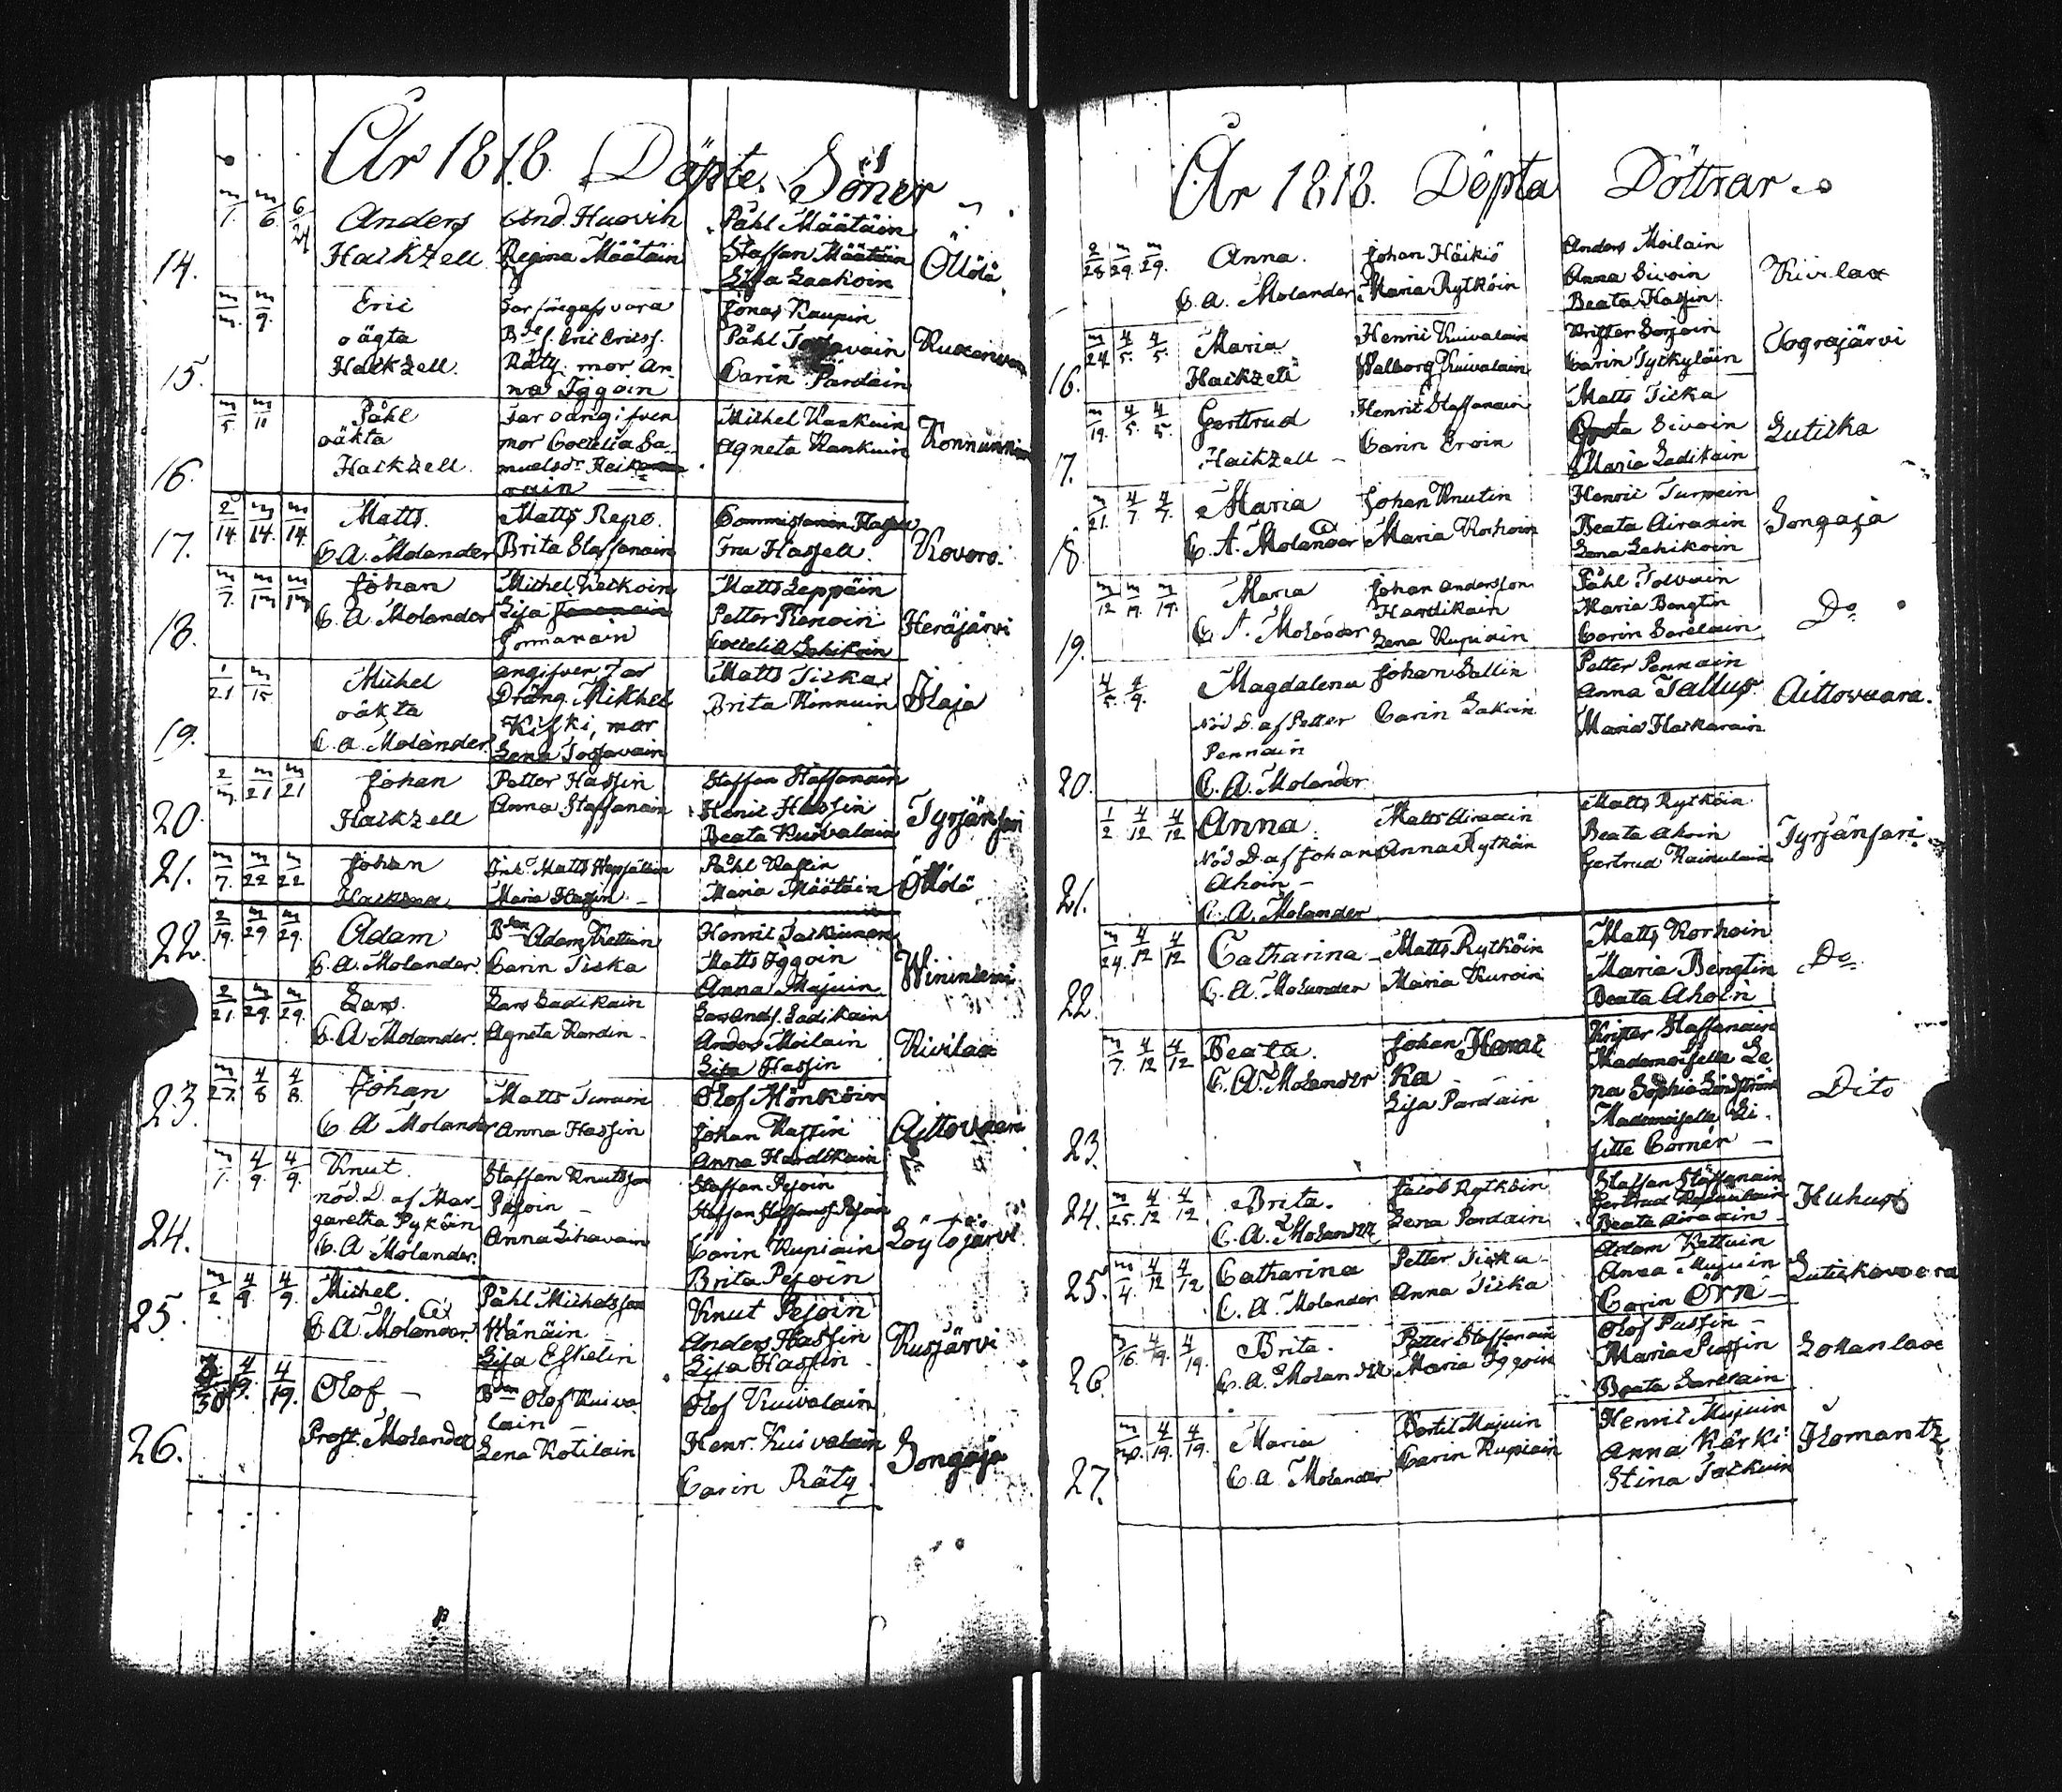 År 1818. Döpte Söner
14.
m/1. m/6. 6/24
Anders
Haikzell
And. Huovin
Regina Määtäin
Påhl Määtäin
Staffan Määtäin
Lisa Laakoin
Öllölä
15.
m/m. m/9.
Eric
oägta
Haikzell.
Far föregafs vara
Bdes. Eric Ericss.
Räty. mor An
na Iggoin
Jonas Kaupin
Påhl
Carin Pardain
16.
m/5. m/11
Påhl
oäkta
Haikzell.
Far oangifven
mor Coecelia Sa-
muelsdr. Reik
vain
Michel Kankuin
Agneta Kankuin
Konnunnie
17.
2/14. m/14. m/14.
Matts.
C. A. Molander
Matts Repo.
Brita Staffanain
Commissarien Hassell
Fru Hassell.
Kovero.
18.
m/7.
Johan
C. A. Molander
Michel Keikoin
Lisa
Jormanain
Matts Leppäin
Petter Renoin
Coecelia Lehikoin
Heräjärvi
19.
1/21 m/15
Michel
oäkta
C. A. Molander
angifven Far
Dräng. Mikkel
Kiski, mor
Lena Tossavain
Matts Tiska
Brita Kinnuin
Ilaja
20.
2/m. m/21 m/21
Johan
Haikzell
Petter Hassin
Anna Staffanain
Staffan Staffanain
Henric Hassin
Beata Kuivalain
Tyrjänsari
21.
m/7. m/22 m/22
Johan
Inh. Matts
Maria Hassin. –
Påhl Rassin
Maria Määtäin
Öllölä
22.
2/19. m/29. m/29.
Adam
C. A. Molander
Bden Adam Kettuin
Carin Tiska
Henric Tackuinen
Matts Iggoin
Anna Majuin
Wininiemi
2/21. m/29. m/29.
Lars.
C. A. Molander.
Lars Ladikain
Agneta Kardin –
Lars Ands. Ladikain
Anders Moilain
Lisa Hassin
Kivilax
23
m/27. 4/8 4/8.
Johan
C. A. Molander
Matts Turuin
Anna Hassin
Olof Mönköin
Johan Rassin
Anna Hardikain
Aittovaara
24.
m/1. 4/9. 4/9.
Knut.
nöd. D. af Mar-
garetha Pyköin
C. A. Molander.
Staffan Knutsson
Pejoin –
Anna Lihavain
Staffan Pejoin
Staffan Staffanss. Pejoin
Carin Kupiain
Brita Pejoin
Löytöjärvi
25.
m/2 4/9. 4/9.
Michel.
C. A. Molander
Påhl Michelsson
Hänäin –
Lisa Eskelin
Knut Pejoin
Anders Hassin
Lisa Hassin
Kusjärvi
26.
4/9. 4/19.
Olof –
Prost. Molander
Bden Olof Kuiva
lain –
Lena Kotilain
Olof Kuivalain
Henr. Kuivalain
Carin Räty.
Songaja
År 1818. Döpta Döttrar.
2/28 m/29. m/29.
Anna.
C. A. Molander
Johan Häikiö
Maria Rytköin
Anders Moilain
Anna Sivoin
Beata Hassin.
Kivilax
16.
m/24 4/5. 4/5.
Maria
Haikzell
Henric Kuivalain
Walborg Kuivalain
Krister Sorjoin
Carin Tyckyläin
Sograjärvi
17.
m/19. 4/5. 4/5.
Gerttrud
Haikzell –
Henric Staffanain
Carin Eroin
Matts Tiska
Greta Sivoin
Maria Ladikain
Lutiska
18
m/21. 4/7. 4/7.
Maria
C. A. Molander
Johan Knutin
Maria Korhoin
Henric Turpein
Beata Airaxin
Lena Lehikoin
Songaja
19.
m/12 m/19. m/19.
Maria
C. A. Molander
Johan Andersson
Hardikain
Lena Kupiain
Påhl Tolvain
Maria Bengtin
Carin Sarelain
Do
20.
4/5. 4/9.
Magdalena
Nöd D. af Petter
Pennain
C. A. Molander
Johan Sallin
Carin Lakoin
Petter Pennain
Anna Tallus
Maria Haikarain
Aittovaara.
21.
1/2 4/12 4/12
Anna.
Nöd D. af Johan
Ahoin –
C. A. Molander
Matts Airaxin
Anna Rytköin
Matts Rytköin
Beata Ahoin
Gertrud Kainulain
Tyrjänsari.
22.
m/24. 4/12 4/12
Catharina –
C. A. Molander
Matts Rytköin
Maria Kuroin
Matts Korhoin
Maria Bengtin
Beata Ahoin
Do
23.
m/7. 4/12 4/12
Beata.
C. A. Molander
Johan
ka
Lisa Pardain
Krister Staffanain
Mademoiselle Le
na Sophia Lindström
Mademoiselle Li-
sette Cornér –
Dito
24.
m/25. 4/12 4/12
Brita.
C. A. Molander
Jacob Rytköin
Lena Pardain
Staffan Staffanain
Beata Airaxin
Huhus
25.
m/4. 4/12 4/12
Catharina
C. A. Molander
Petter Tiska –
Anna Tiska
Adam Kettuin
Anna Mujuin
Carin Örn –
Lutiskavaara
26.
m/16. 4/19. 4/19.
Brita.
C. A. Molander
Petter Staffanain
Maria Iggoin
Olof Pussin –
Maria Piassin
Beata Sarelain
Lokanlax
27.
4/19. 4/19.
Maria
C. A. Molander
Bertil Mujuin
Carin Kupiain
Henric Mujuin
Anna Kärki
Stina Tackuin
Ilomantz